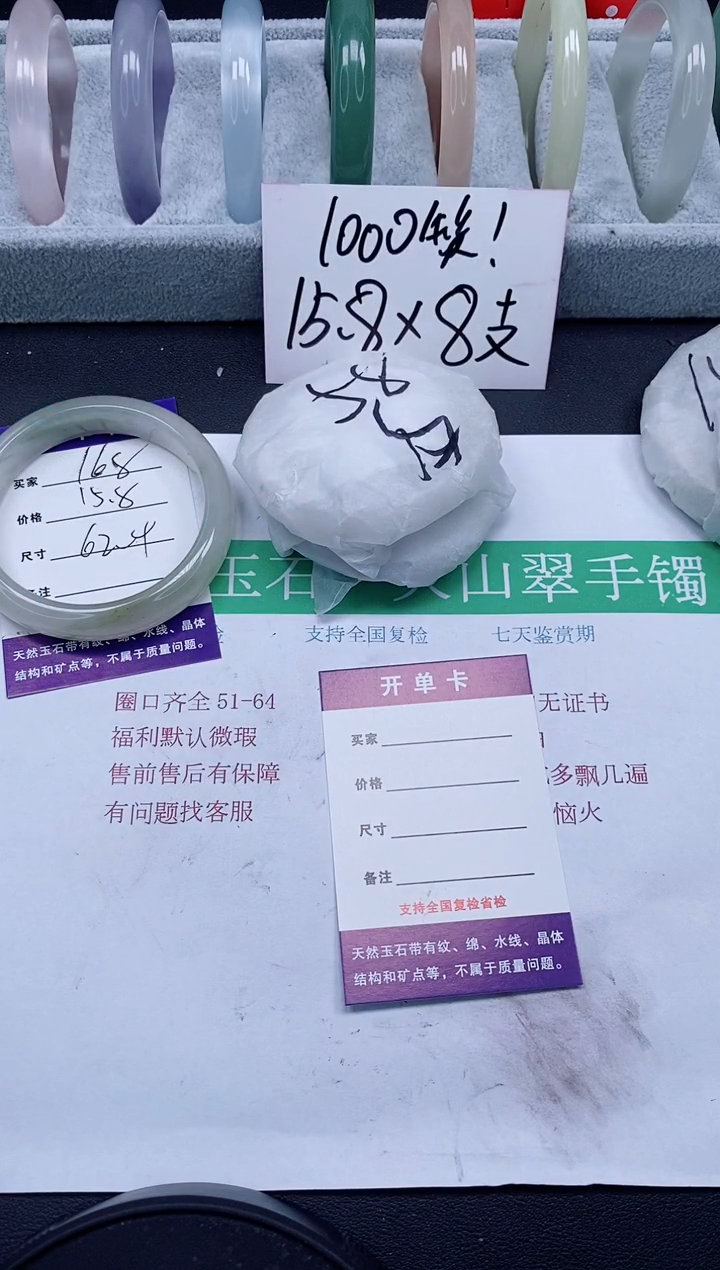 1000候!
15.8×8支
买家 168
价格 15.8
尺寸 62.4
注
天然玉石带有纹、绵、水线、晶体
结构和矿点等，不属于质量问题。
玉石
山翠手镯
支持全国复检
七天鉴赏期
圈口齐全 51-64
福利默认微瑕
售前售后有保障
有问题找客服
无证书
多飘几遍
恼火
开单卡
买家
价格
尺寸
备注
支持全国复检省检
天然玉石带有纹、绵、水线、晶体
结构和矿点等，不属于质量问题。